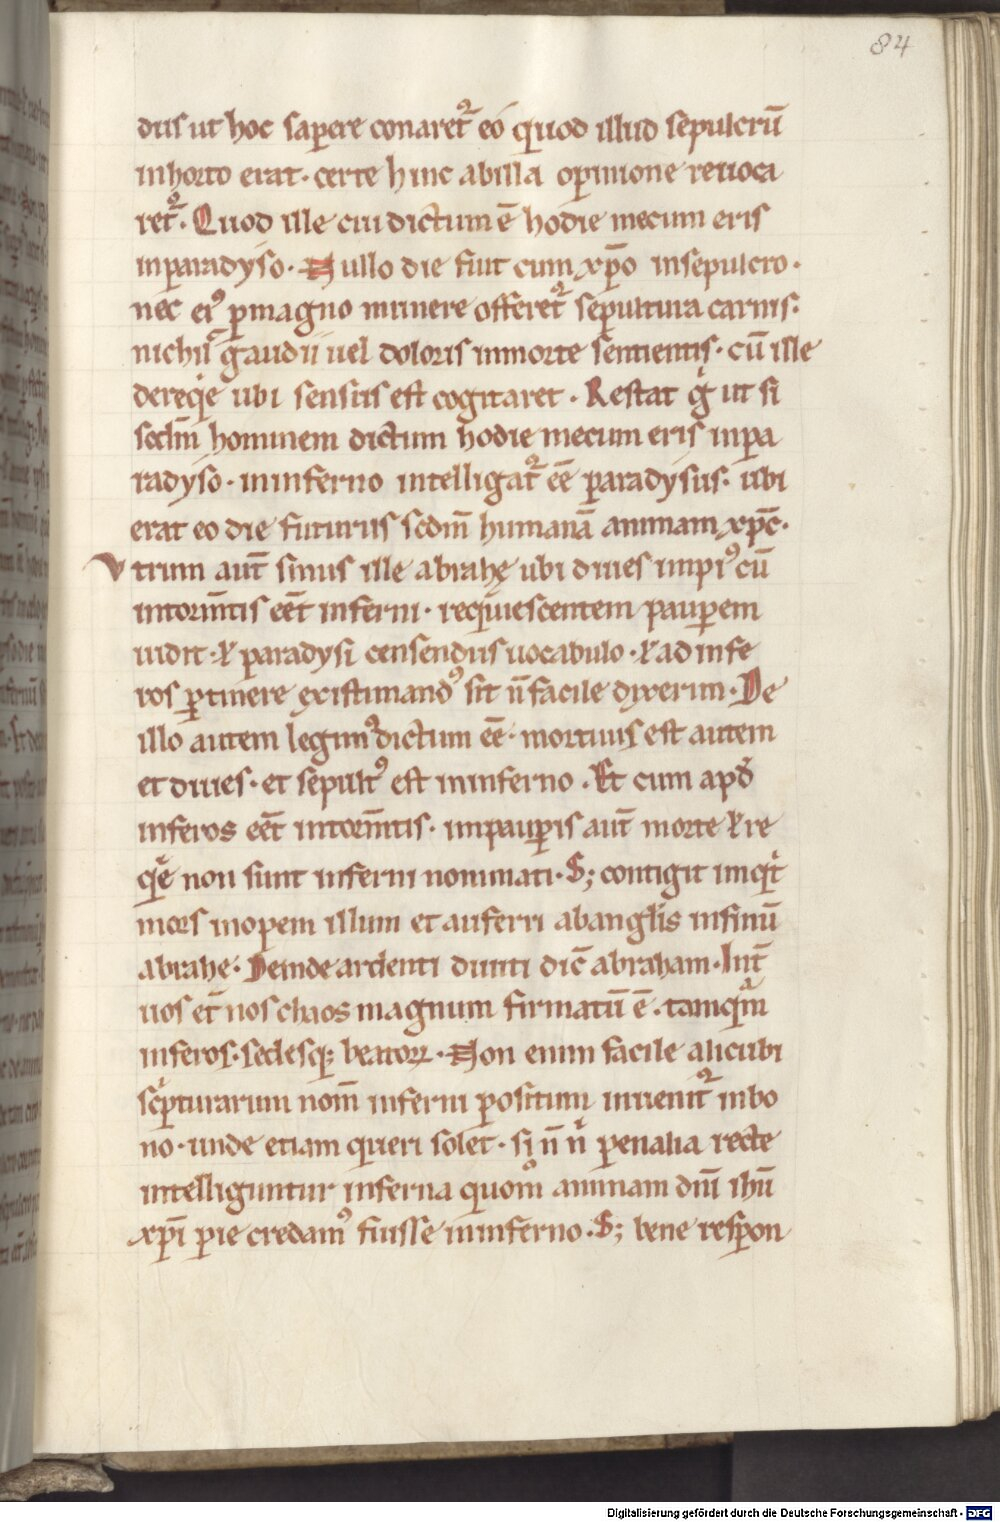 84
dus ut hoc sapere conaret᷑ eo quod illud sepulcrū
inhorto erat · certe hinc abilla opinione reuoca
ret᷑ · Quod ille cui dictum ē hodie mecum eris
inparadyso · Nullo die fuit cum xp̄o insepulcro ·
nec eiꝰ ꝑmagno munere offeret᷑ sepultura carnis ·
nichil gaudii uel doloris inmorte sentientis · cū ille
dereq̄e ubi sensus est cogitaret · Restat gͥ ut si
sc̄dm hominem dictum hodie mecum eris inpa
radyso · ininferno intelligat᷑ eē̄ paradysus · ubi
erat eo die futurus scdm̄ humanā animam xp̄c ·
Vtrum aut̄ sinus ille abrahę ubi diues impiꝰ cū
intorm̄tis eēt inferni · requiescentem pauꝑem
uidit · ł paradysi censendus uocabulo · ł ad infe
ros ꝑtinere existimandꝰ sit n̄ facile dixerim · De
illo autem legimꝰ dictum eē · mortuus est autem
et diues · et sepultꝰ est ininferno · Et cum apd̄
inferos eēt intorm̄tis · inpauꝑis aut̄ morte ł re
q̄e non sunt inferni nominati · S; contigit inqͥt
mors inopem illum et auferri abangl̄is insinū
abrahę · Deinde ardenti diuiti dic̄ abraham · Int̄
uos et̄ nos chaos magnum firmatū ē · tamqᵃm
inferos · sedesq; beatoꝝ · Non enim facile alicubi
scͥpturarum nom̄ inferni positum inuenit᷑ inbo
no · unde etiam queri solet · si n̄ nͥ penalia recte
intelliguntur inferna quomᵒ animam dn̄i ihū
xp̄i pie credamꝰ fuisse ininferno · S; bene respon
Digitalisierung gefördert durch die Deutsche Forschungsgemeinschaft - DFG